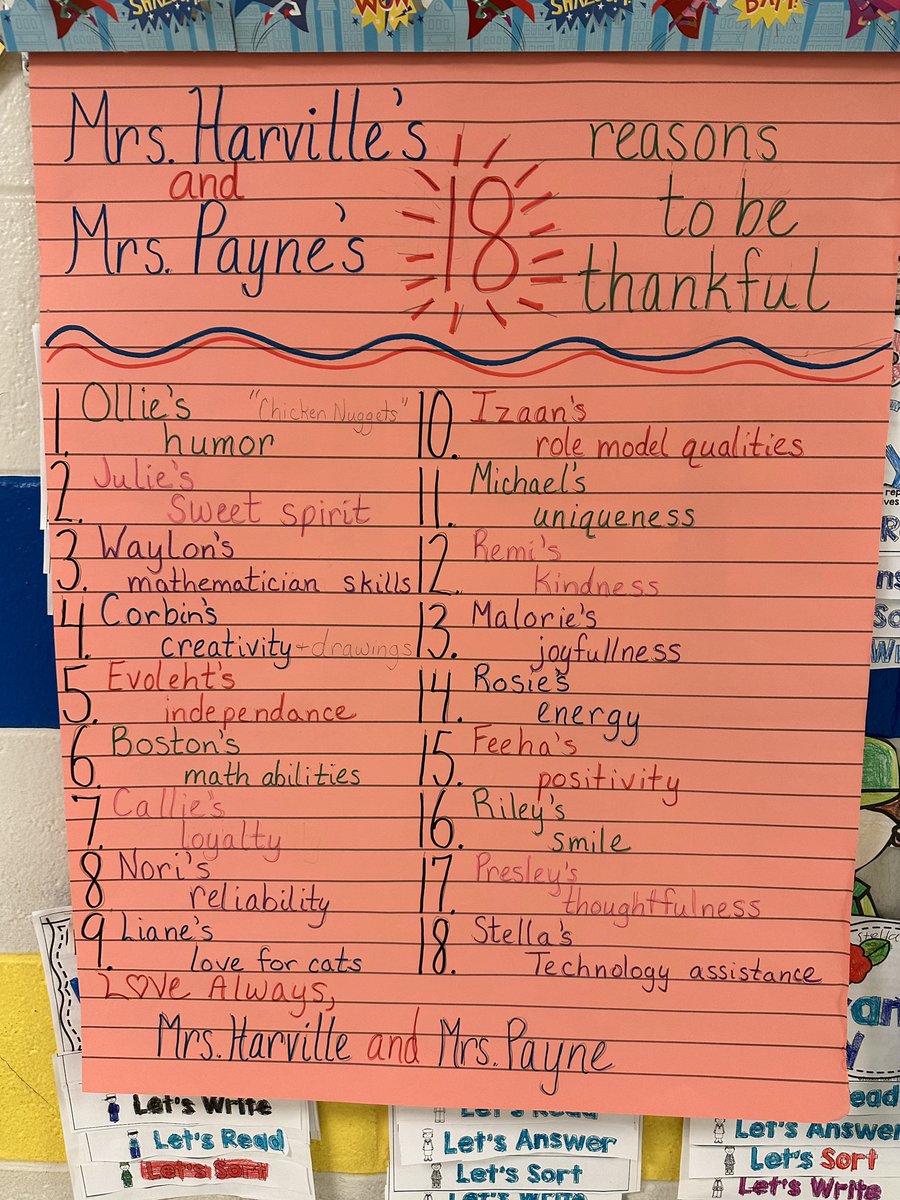 SHAZAM!
WOW
SHAZAM!
BAM!
Mrs. Harville's
and
Mrs. Payne's
18
reasons
to be
thankful
1. Ollie's "Chicken Nuggets"
humor
2. Julie's
Sweet spirit
3. Waylon's
mathematician skills
4. Corbin's
creativity + drawings
5. Evoleht's
independance
6. Boston's
math abilities
7. Callie's
loyalty
8. Nori's
reliability
9. Liane's
love for cats
10. Izaan's
role model qualities
11. Michael's
uniqueness
12. Remi's
Kindness
13. Malorie's
joyfullness
14. Rosie's
energy
15. Feeha's
positivity
16. Riley's
smile
17. Presley's
thoughtfulness
18. Stella's
Technology assistance
L♡ve Always,
Mrs. Harville and Mrs. Payne
Stella
Let's Write
Let's Read
Let's Sort
Let's Read
Let's Answer
Let's Sort
Let's Write
Read
Let's Answer
Let's Sort
Let's Write